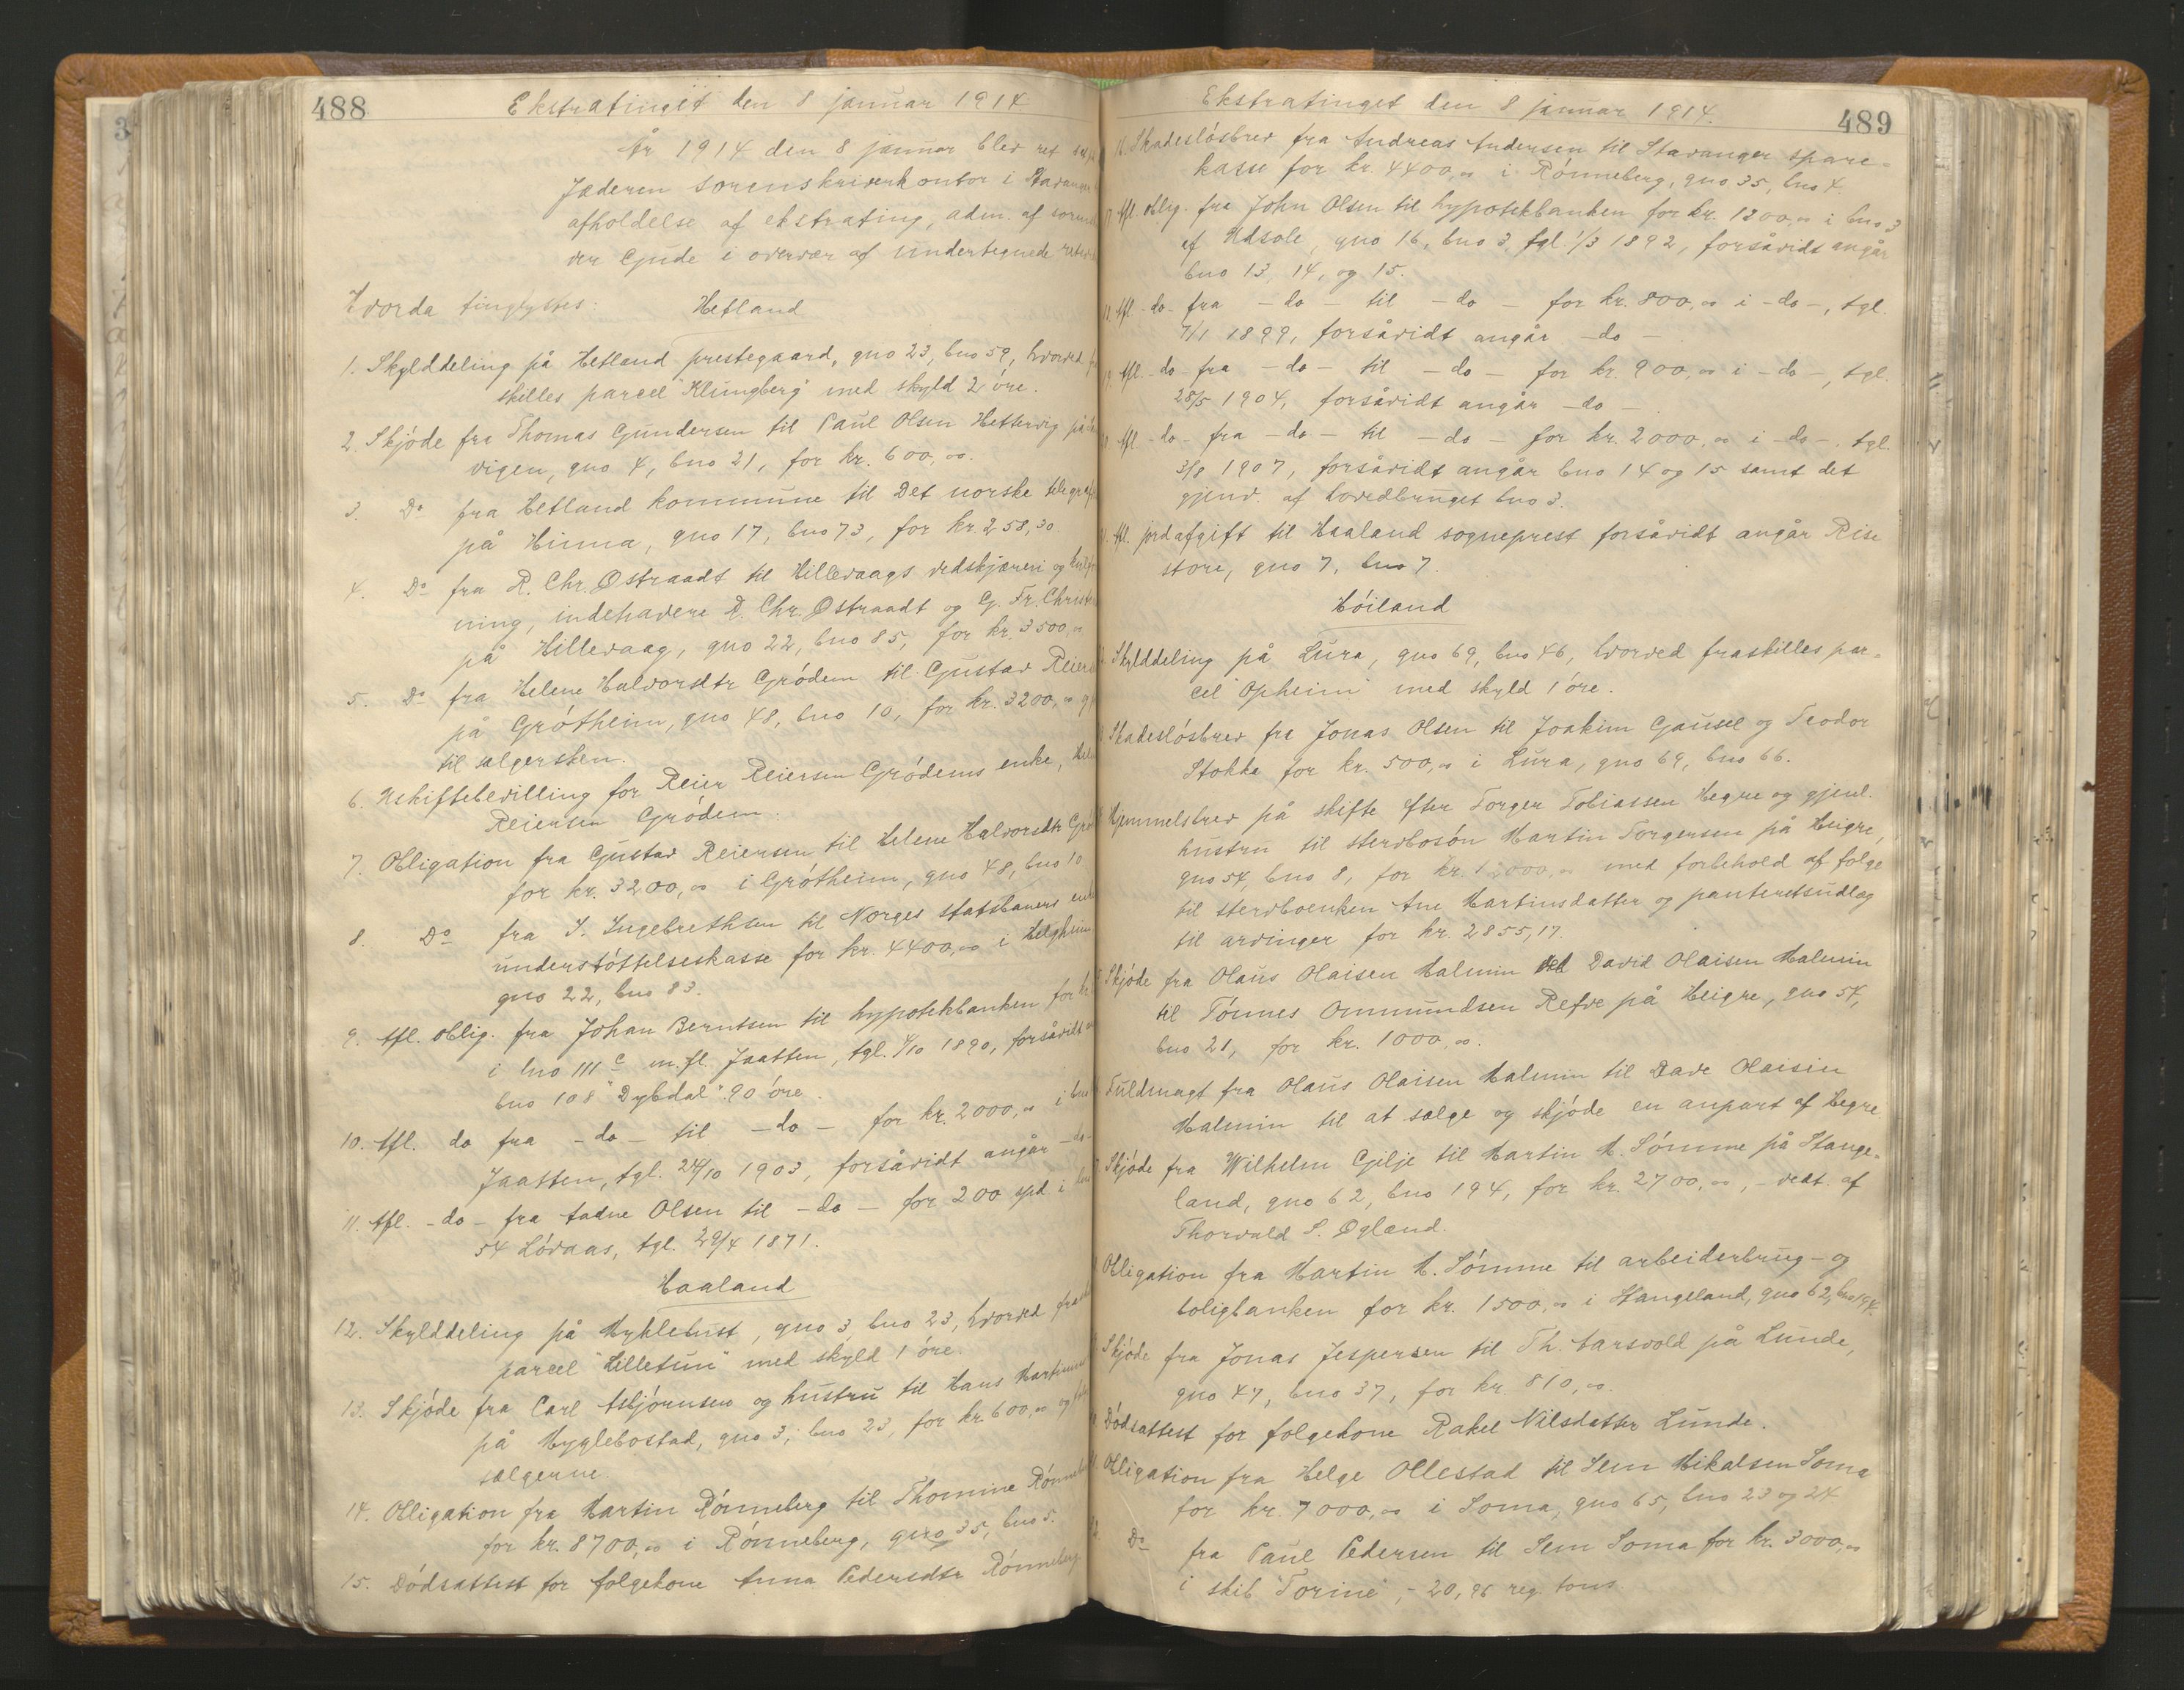 488
Ekstratinget den 8 januar 1914
År 1914 den 8 januar blev ret
Jæderen sorenskriverkontor i Stavanger
afholdelse af ekstrating, adm. af
ver Gjude i overvær af undertegnede
Hvorda tinglystes:
Hetland
1. Skylddeling på Hetland prestegaard, gno 23, bno 59, hvorved
skilles parcel "Klungberg" med skyld 2 øre.
2. Skjöde fra Thomas Gundersen til Paul Olsen Hettervig på
vigen, gno 4, bno 21, for kr. 600,00.
3. Do fra Hetland kommune til Det norske
på Hinna, gno 17, bno 73, for kr. 258,30
4. Do fra R. Chr. Østraadt til Hillevaags vedskjæreri og
ning, indehavere R. Chr. Østraadt og G. Fr.
på Hillevaag, gno 22, bno 85, for kr. 3500,00
5. Do fra Helene Halvorsdtr Grödem til Gustav
på Grötheim, gno 48, bno 10, for kr. 3200,00
til sælgersken.
6. Uskiftebevilling for Reier Reiersen Grödems enke,
Reiersen Grödem.
7. Obligation fra Gustav Reiersen til Helene Halvorsdtr
for kr. 3200,00 i Grötheim, gno 48, bno 10
8. Do fra S. Ingebrethsen til Norges statsbaners
understöttelseskasse for kr. 4400,00 i Helgheim
gno 22, bno 83.
9. Afl. oblig. fra Johan Berntsen til hypotekbanken for kr
i lno 111 c m.fl. Jaatten, tgl. 1/10 1890, forsåvidt
bno 108 "Dybdal" 90 öre.
10. Afl. do fra -do- til -do- for kr. 2000,00 i
Jaatten, tgl. 24/10 1903, forsåvidt angår -do-
11. Afl. -do- fra Aadne Olsen til -do- for 200 spd. i
54 Lövaas, tgl. 29/4 1871.
Haaland
12. Skylddeling på Myklebust, gno 3, bno 23, hvorved
parcel "Lilletun" med skyld 1 öre.
13. Skjöde fra Carl Asbjörnsen og hustru til Hans
på Myglebostad, gno 3, bno 23, for kr. 600,00 og
sælgerne.
14. Obligation fra Martin Rönneberg til Thomine
for kr. 8700,00 i Rönneberg, gno 35, bno 5.
15. Dödsattest for folgekone Anna Pedersdtr Rönneberg
Ekstratinget den 8 januar 1914.
489
16. Skadeslösbrev fra Andreas Andersen til Stavanger spare-
kasse for kr. 4400,00 i Rönneberg, gno 35, bno 4.
17. Afl. oblig. fra John Olsen til hypotekbanken for kr. 1200,00 i bno 3
af Udsole, gno 16, bno 3, tgl 1/3 1892, forsåvidt angår
bno 13, 14, og 15.
Afl. -do- fra -do- til -do- for kr. 800,00 i -do-, tgl.
7/1 1899, forsåvidt angår -do-
Afl. -do- fra -do- til -do- for kr. 900,00 i -do-, tgl.
28/5 1904, forsåvidt angår -do-.
Afl. -do- fra -do- til -do- for kr. 2000,00 i -do-, tgl.
3/8 1907, forsåvidt angår bno 14 og 15 samt det
gjenv. af hovedbruget bno 3.
Afl. jordafgift til Haaland sogneprest forsåvidt angår Rise
store, gno 7, bno 7.
Höiland
Skylddeling på Lura, gno 69, bno 46, hvorved fraskilles par-
cel "Opheim" med skyld 1 öre.
Skadeslösbrev fra Jonas Olsen til Joakim Gausel og Teodor
Stokka for kr. 500,00 i Lura, gno 69, bno 66.
Hjemmelsbrev på skifte efter Torger Tobiassen Hegre og gjenl.
hustru til stervbosön Martin Torgersen på Heigre,
gno 54, bno 8, for kr. 12000,00 med forbehold af folge
til stervboenken Ane Martinsdatter og panteretsudlæg
til arvinger for kr. 2855,17.
Skjöde fra Olaus Olaisen Malmin ved David Olaisen Malmin
til Tönnes Ommundsen Refve på Heigre, gno 54,
bno 21, for kr. 1000,00.
Fuldmagt fra Olaus Olaisen Malmin til Dave Olaisin
Malmin til at sælge og skjöde en anpart af Hegre
Skjöde fra Wilhelm Gilje til Martin M. Sömme på Stange-
land, gno 62, bno 194, for kr. 2700,00, - vedt. af
Thorvald S. Øgland.
Obligation fra Martin M. Sömme til arbeiderbrug- og
boligbanken for kr. 1500,00 i Stangeland, gno 62, bno 194.
Skjöde fra Jonas Jespersen til Th. Aarsvold på Lunde,
gno 47, bno 37, for kr. 810,00.
Dödsattest for folgekone Rakel Nilsdatter Lunde.
Obligation fra Helge Ollestad til Sem Mikalsen Soma
for kr. 7000,00 i Soma, gno 65, bno 23 og 24
Do fra Paul Pedersen til Sem Soma for kr. 3000,00
i skib "Torine", - 20,96 reg. tons.